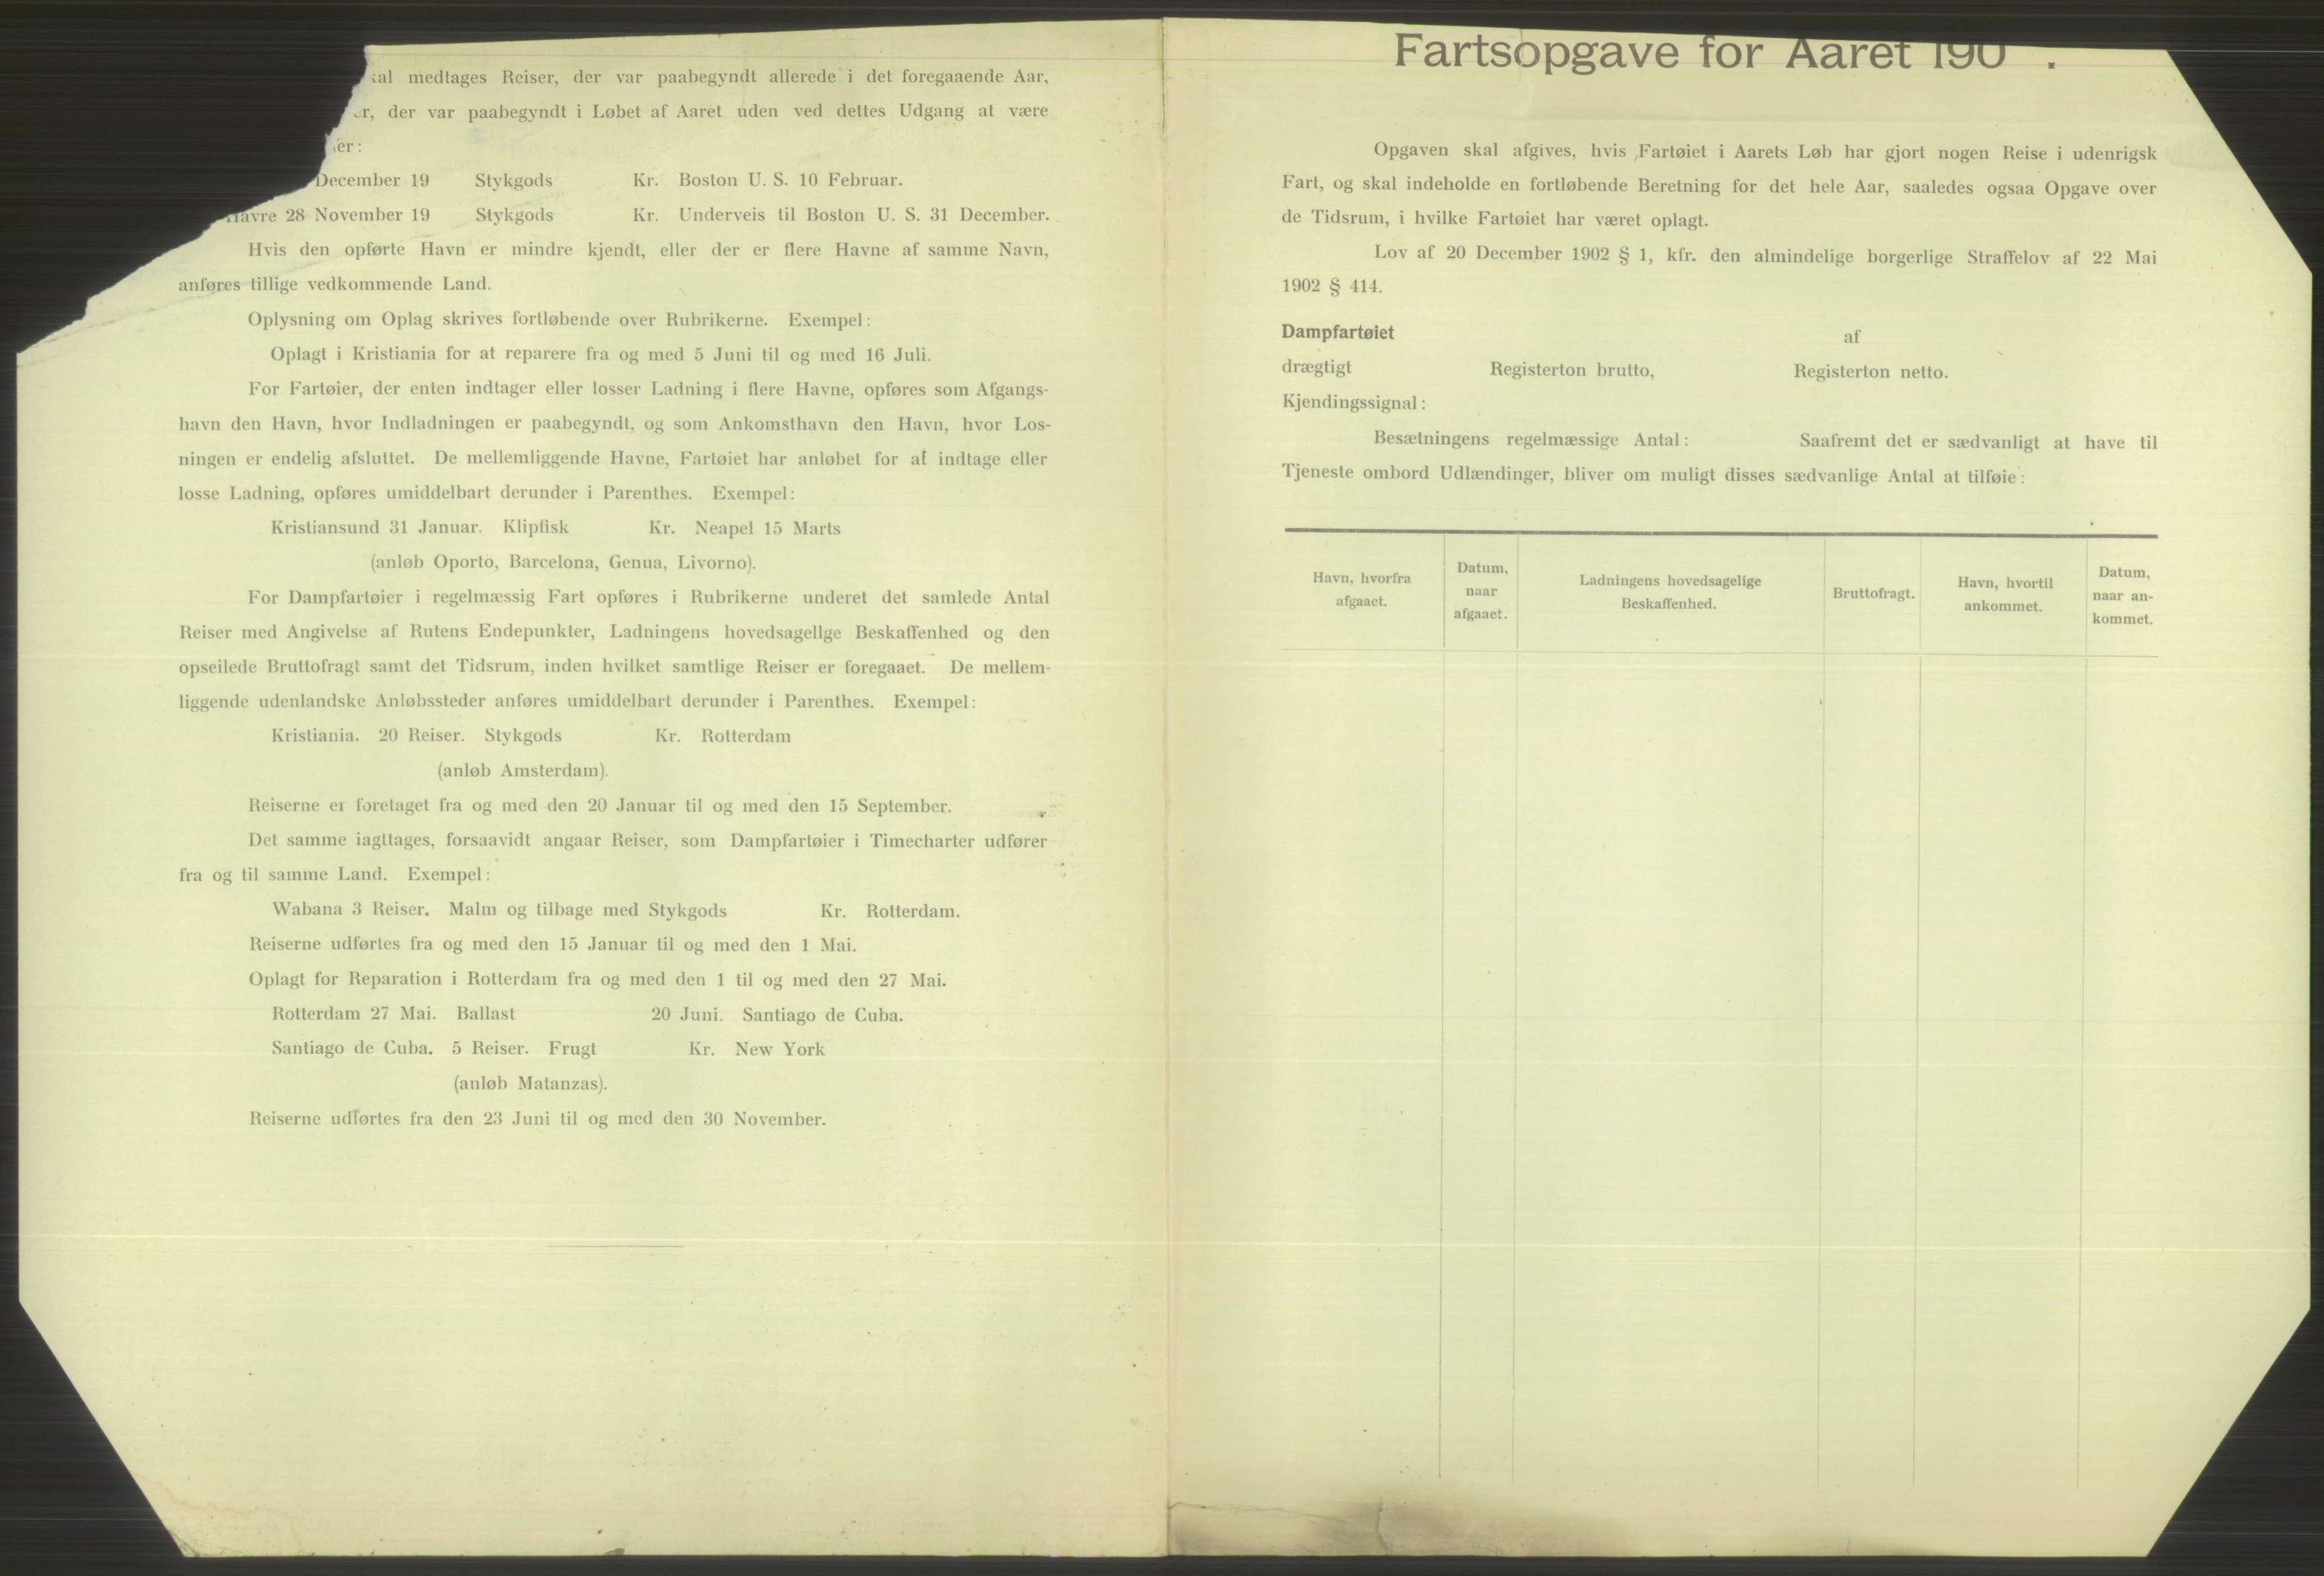 medtages Reiser, der var paabegyndt allerede i det foregaaende Aar,
der var paabegyndt i Løbet af Aaret uden ved dettes Udgang at være
December 19 Stykgods Kr. Boston U. S. 10 Februar.
Havre 28 November 19 Stykgods Kr. Underveis til Boston U. S. 31 December.
Hvis den opførte Havn er mindre kjendt, eller der er flere Havne af samme Navn,
anføres tillige vedkommende Land.
Oplysning om Oplag skrives fortløbende over Rubrikerne. Exempel:
Oplagt i Kristiania for at reparere fra og med 5 Juni til og med 16 Juli.
For Fartøier, der enten indtager eller losser Ladning i flere Havne, opføres som Afgangs-
havn den Havn, hvor Indladningen er paabegyndt, og som Ankomsthavn den Havn, hvor Los-
ningen er endelig afsluttet. De mellemliggende Havne, Fartøiet har anløbet for at indtage eller
losse Ladning, opføres umiddelbart derunder i Parenthes. Exempel:
Kristiansund 31 Januar. Klipfisk Kr. Neapel 15 Marts
(anløb Oporto, Barcelona, Genua, Livorno).
For Dampfartøier i regelmæssig Fart opføres i Rubrikerne underet det samlede Antal
Reiser med Angivelse af Rutens Endepunkter, Ladningens hovedsagellge Beskaffenhed og den
opseilede Bruttofragt samt det Tidsrum, inden hvilket samtlige Reiser er foregaaet. De mellem-
liggende udenlandske Anløbssteder anføres umiddelbart derunder i Parenthes. Exempel:
Kristiania. 20 Reiser. Stykgods Kr. Rotterdam
(anløb Amsterdam).
Reiserne er foretaget fra og med den 20 Januar til og med den 15 September.
Det samme iagttages, forsaavidt angaar Reiser, som Dampfartøier i Timecharter udfører
fra og til samme Land. Exempel:
Wabana 3 Reiser. Malm og tilbage med Stykgods Kr. Rotterdam.
Reiserne udførtes fra og med den 15 Januar til og med den 1 Mai.
Oplagt for Reparation i Rotterdam fra og med den 1 til og med den 27 Mai.
Rotterdam 27 Mai. Ballast 20 Juni. Santiago de Cuba.
Santiago de Cuba. 5 Reiser. Frugt Kr. New York
(anløb Matanzas).
Reiserne udførtes fra den 23 Juni til og med den 30 November.
Fartsopgave for Aaret 190 .
Opgaven skal afgives, hvis Fartøiet i Aarets Løb har gjort nogen Reise i udenrigsk
Fart, og skal indeholde en fortløbende Beretning for det hele Aar, saaledes ogsaa Opgave over
de Tidsrum, i hvilke Fartøiet har været oplagt.
Lov af 20 December 1902 § 1, kfr. den almindelige borgerlige Straffelov af 22 Mai
1902 § 414.
Dampfartøiet af
drægtigt Registerton brutto, Registerton netto.
Kjendingssignal:
Besætningens regelmæssige Antal: Saafremt det er sædvanligt at have til
Tjeneste ombord Udlændinger, bliver om muligt disses sædvanlige Antal at tilføie:
Havn, hvorfra
afgaaet.
Datum,
naar
afgaaet.
Ladningens hovedsagelige
Beskaffenhed.
Bruttofragt.
Havn, hvortil
ankommet.
Datum,
naar an-
kommet.